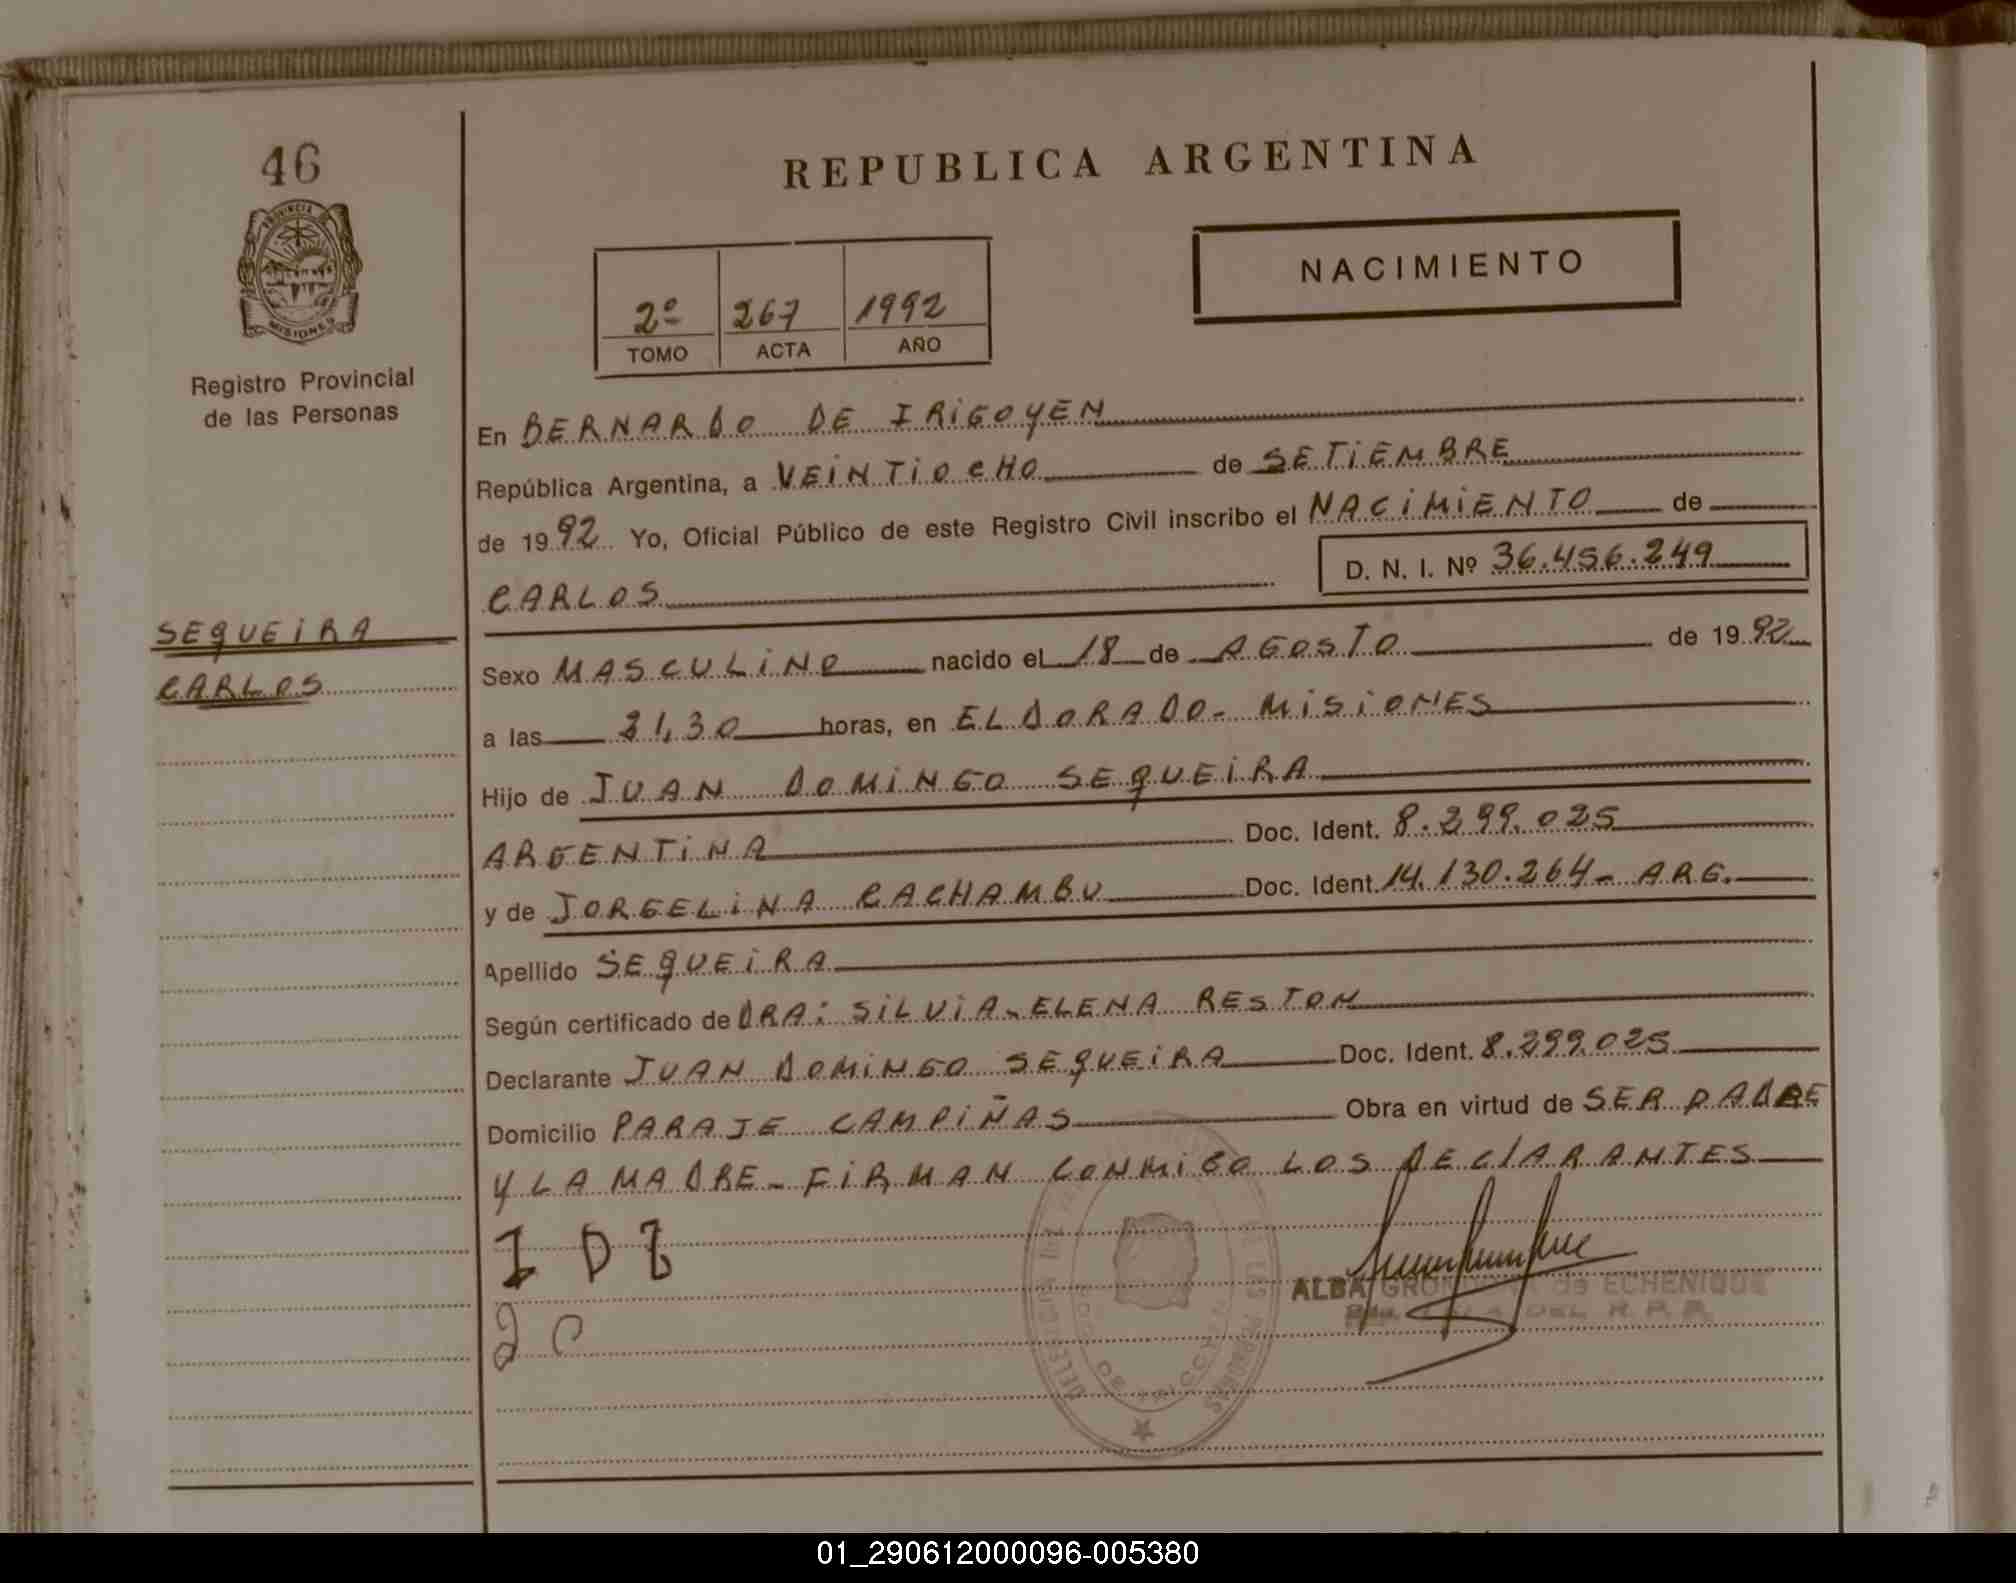 46
PROVINCIA DE
MISIONES
Registro Provincial
de las Personas
SEQUEIRA
CARLOS
REPUBLICA ARGENTINA
NACIMIENTO
2º 267 1992
TOMO ACTA AÑO
En BERNARDO DE IRIGOYEN
República Argentina, a VEINTIOCHO de SETIEMBRE
de 1992 Yo, Oficial Público de este Registro Civil inscribo el NACIMIENTO de
CARLOS D. N. I. Nº 36.456.249
Sexo MASCULINO nacido el 18 de AGOSTO de 1992
a las 21,30 horas, en ELDORADO- MISIONES
Hijo de JUAN DOMINGO SEQUEIRA
ARGENTINA Doc. Ident. 8.299.025
y de JORGELINA CACHAMBU Doc. Ident. 14.130.264- ARG.
Apellido SEQUEIRA
Según certificado de DRA: SILVIA-ELENA RESTON
Declarante JUAN DOMINGO SEQUEIRA Doc. Ident. 8.299.025
Domicilio PARAJE CAMPIÑAS Obra en virtud de SER PADRE
Y LA MADRE- FIRMAN CONMIGO LOS DECLARANTES
ALBA de ECHENIQUE
DEL R. P. P.
01_290612000096-005380